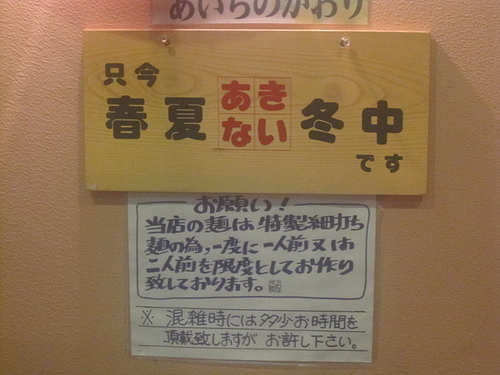 あいらのかわり
只今
春夏あきない冬中
です
お願い!
当店の麺は特製細打ち
麺の為、一度に一人前又は
二人前を限度としてお作り
致しております。
※ 混雑時には多少お時間を
頂戴致しますが お許し下さい。